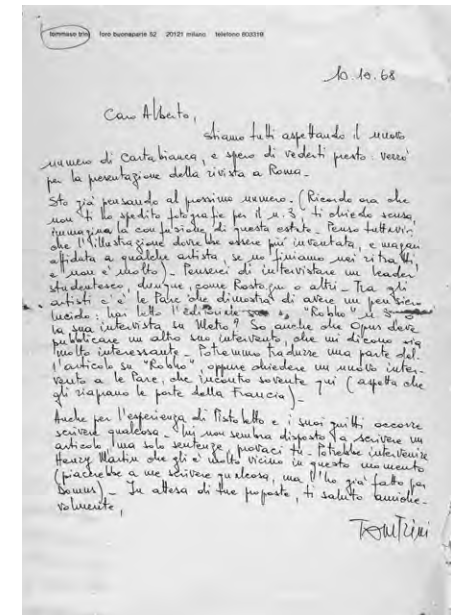 tommaso trini foro buonaparte 52 20121 milano telefono 803319
10.10.68
Caro Alberto,
stiamo tutti aspettando il nuovo
numero di Cartabianca, e spero di vederti presto. Verrò
per la presentazione della rivista a Roma.
Sto già pensando al prossimo numero. (Ricordo ora che
non ti ho spedito fotografie per il n. 3, ti chiedo scusa,
immagina la confusione di questa estate. Penso tuttavia
che l'illustrazione dovrebbe essere più inventata, e magari
affidata a qualche artista, se no finiamo nei ritratti,
e non e' molto). Penserei di intervistare un leader
studentesco, dunque, come Rostagno o altri. Tra gli
artisti c'e' le Parc che dimostra di avere un pensiero
lucido: hai letto l'editoriale su "Robho" n. 3
la sua intervista su Meta? So anche che Opus deve
pubblicare un altro suo intervento, che mi dicono sia
molto interessante. Potremmo tradurre una parte del
l'articolo su "Robho", oppure chiedere un nuovo inter-
vento a le Parc, che incontro sovente qui (aspetta che
gli riaprano le porte della Francia).
Anche per l'esperienza di Pistoletto e i suoi guitti occorre
scrivere qualcosa. Lui non sembra disposto a scrivere un
articolo (ma solo sentenze), provaci tu. Potrebbe intervenire
Henry Martin che gli e' molto vicino in questo momento
(piacerebbe a me scrivere qualcosa, ma l'ho già fatto per
Domus). In attesa di tue proposte, ti saluto amiche-
volmente,
Tom Trini